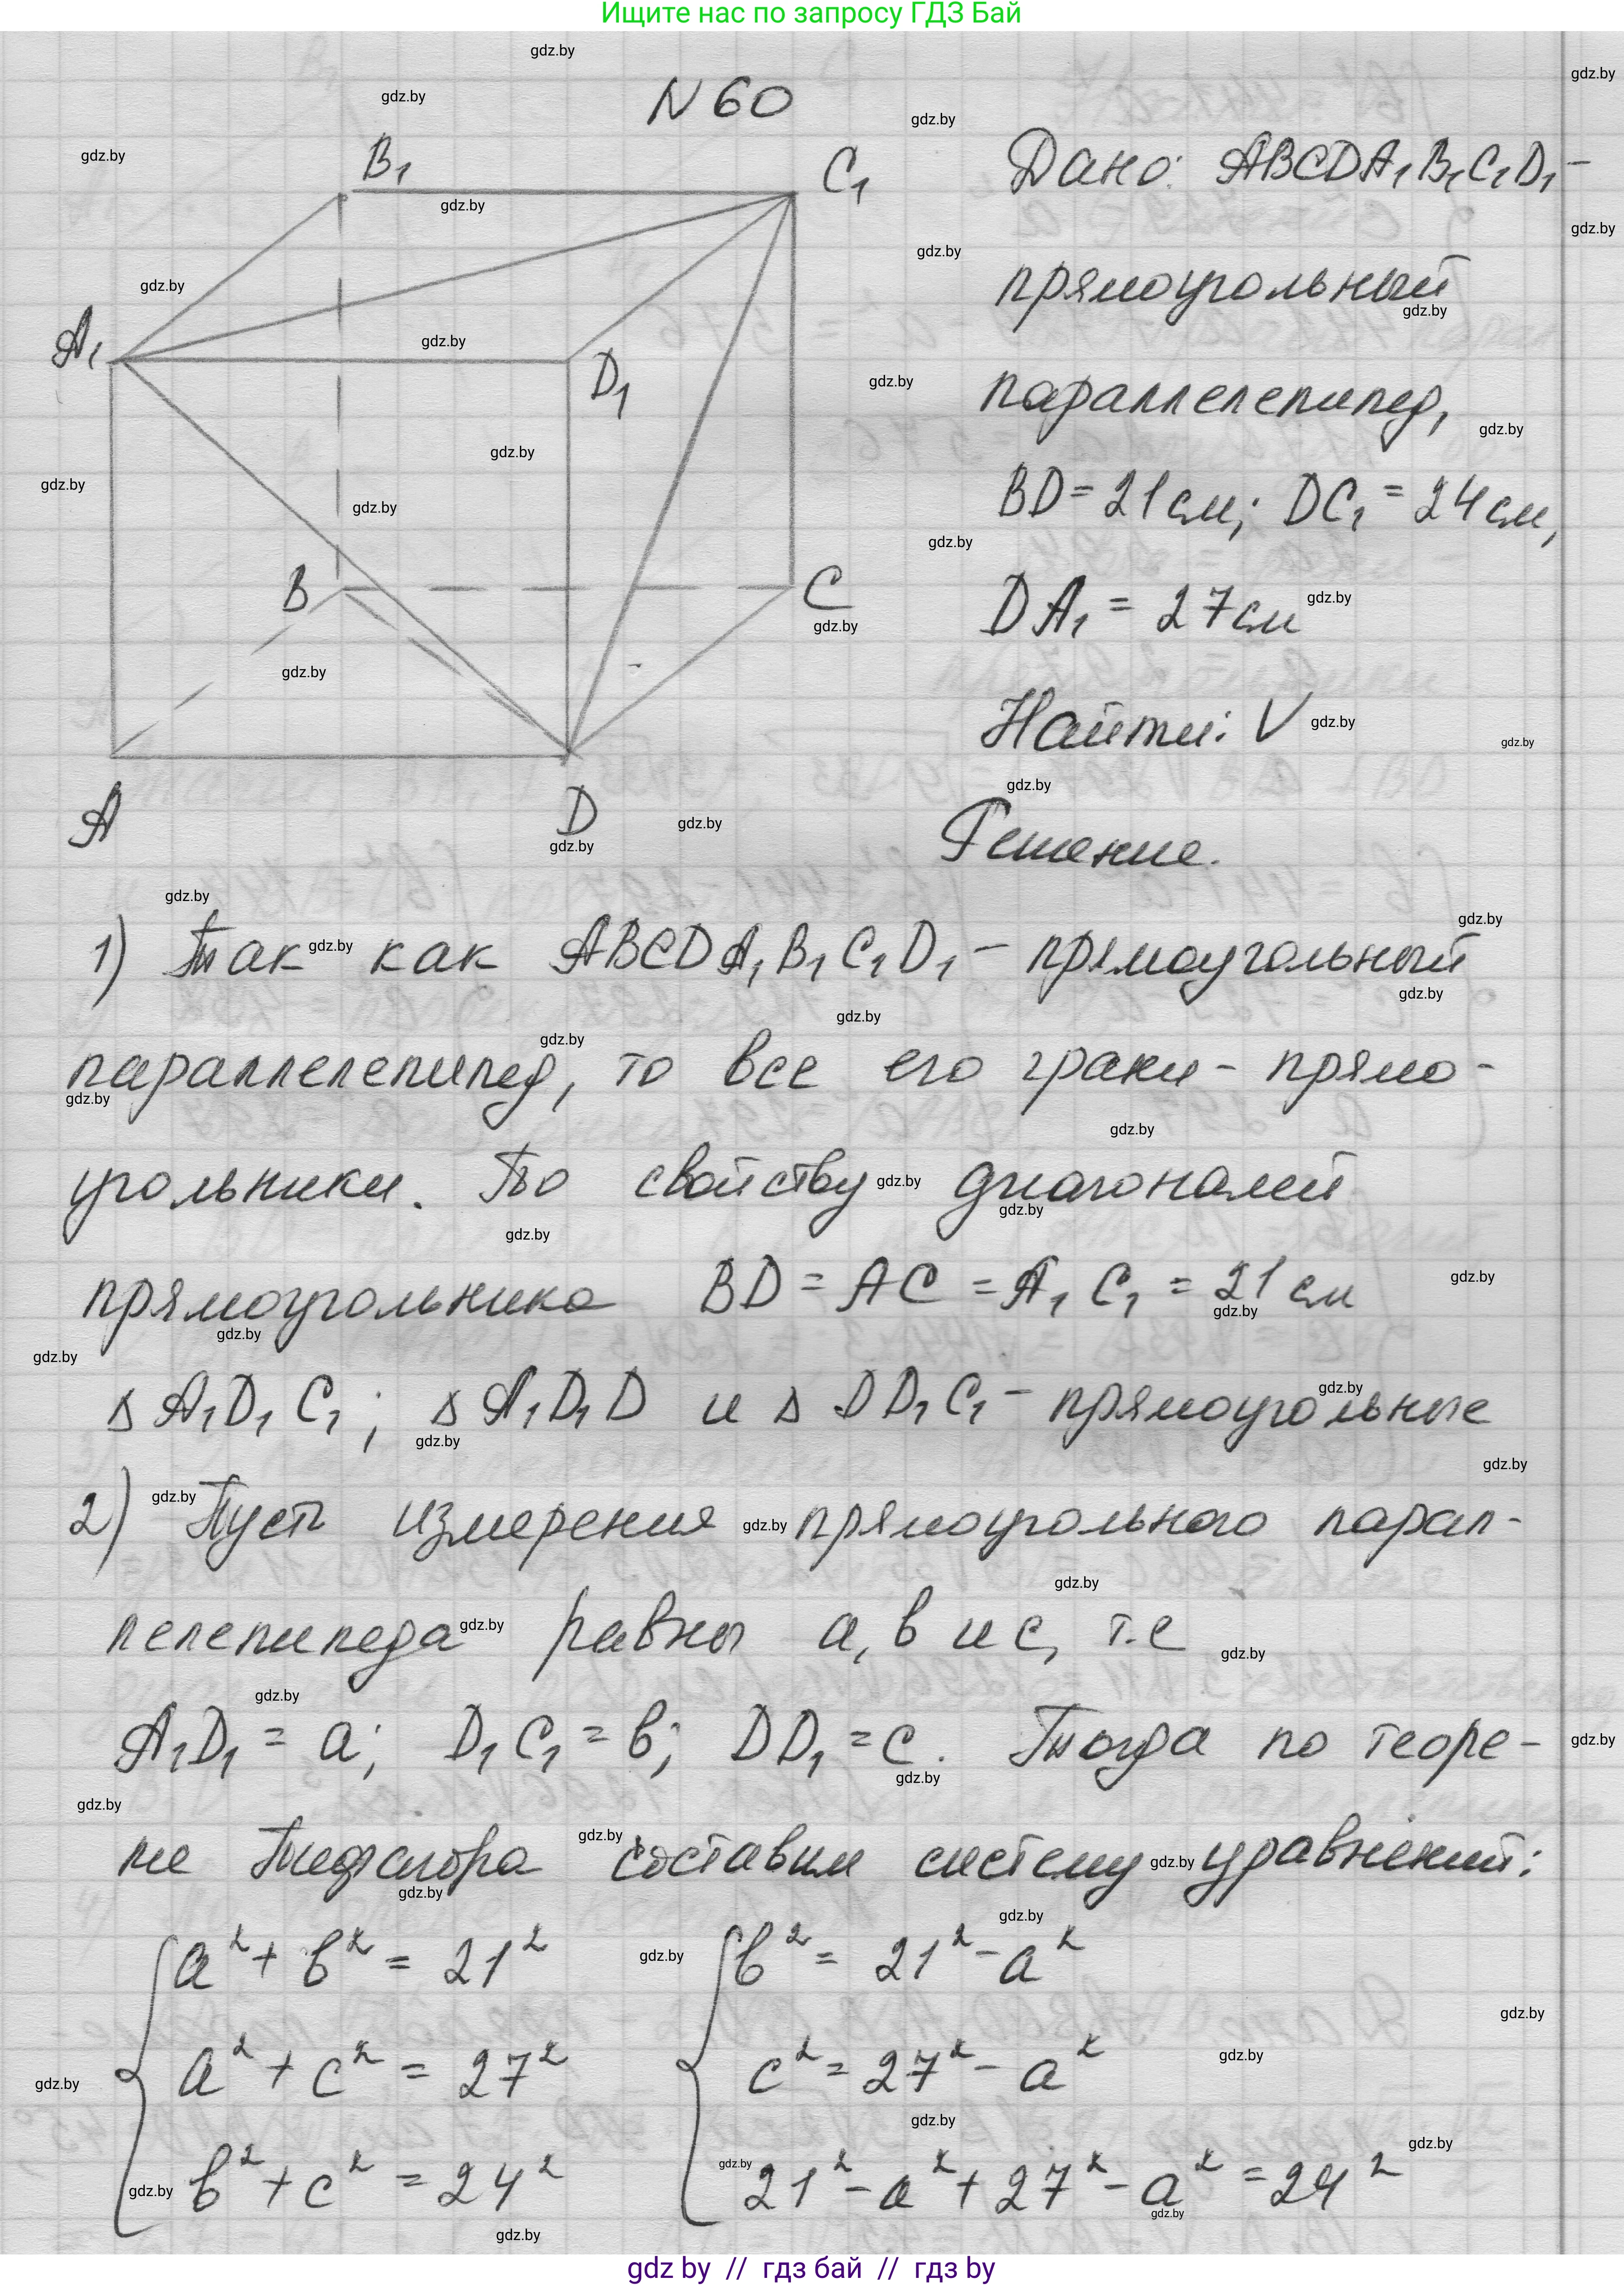 Ищите нас по запросу ГДЗ Бай
N 60
B₁
C₁
A₁
D₁
B
C
A
D
Дано: ABCDA₁B₁C₁D₁ –
прямоугольный
параллелепипед,
BD = 21 см; DC₁ = 24 см,
DA₁ = 27 см
Найти: V
Решение.
1) Так как ABCDA₁B₁C₁D₁ – прямоугольный
параллелепипед, то все его грани – прямо-
угольники. По свойству диагоналей
прямоугольника BD = AC = A₁C₁ = 21 см
Δ A₁D₁C₁; Δ A₁D₁D и Δ DD₁C₁ – прямоугольные
2) Пусть измерения прямоугольного парал-
лелепипеда равны а, в и с, т.е
A₁D₁ = a; D₁C₁ = в; DD₁ = c. Тогда по теоре-
ме Пифагора составим систему уравнений:
a² + в² = 21²
в² = 21² – a²
a² + c² = 27²
c² = 27² – a²
в² + c² = 24²
21² – a² + 27² – a² = 24²
gdz by // гдз бай // гдз by